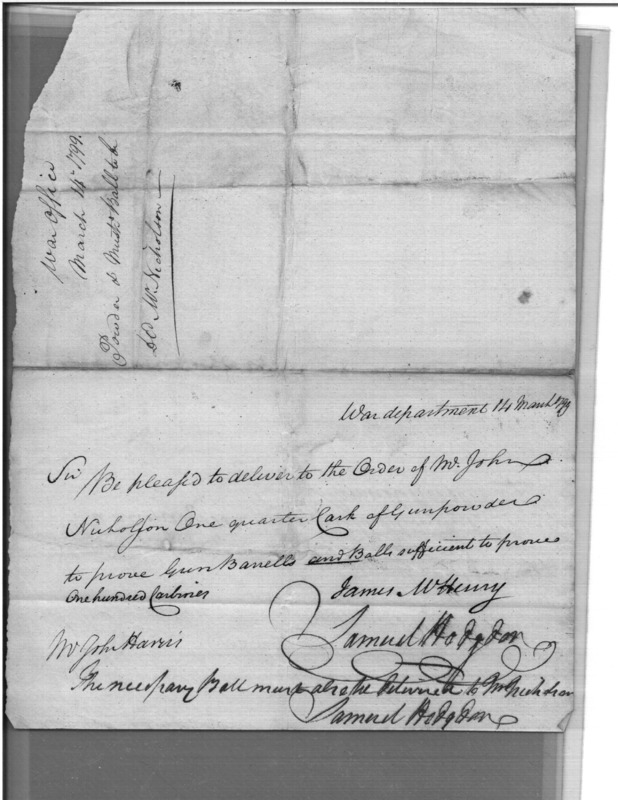 War Office
March 14th 1799.
Powder & Musk. Ball to be
dd. Mr. Nicholson
War department 14 March 1799
Sir Be pleased to deliver to the Order of Mr. John
Nicholson One quarter Cask of Gunpowder
to prove Gun Barrells and Balls sufficient to prove
One hundred Carbines
James McHenry
Samuel Hodgdon
Mr John Harris
The necessary Ball must also be delivered to Mr Nicholson
Samuel Hodgdon